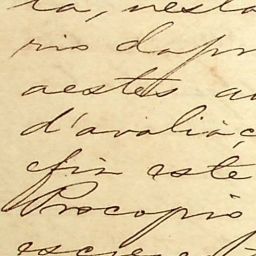 ta, nesta
rio da pr
aestes au
d'avaliaç
fiz este
Procopio
escre